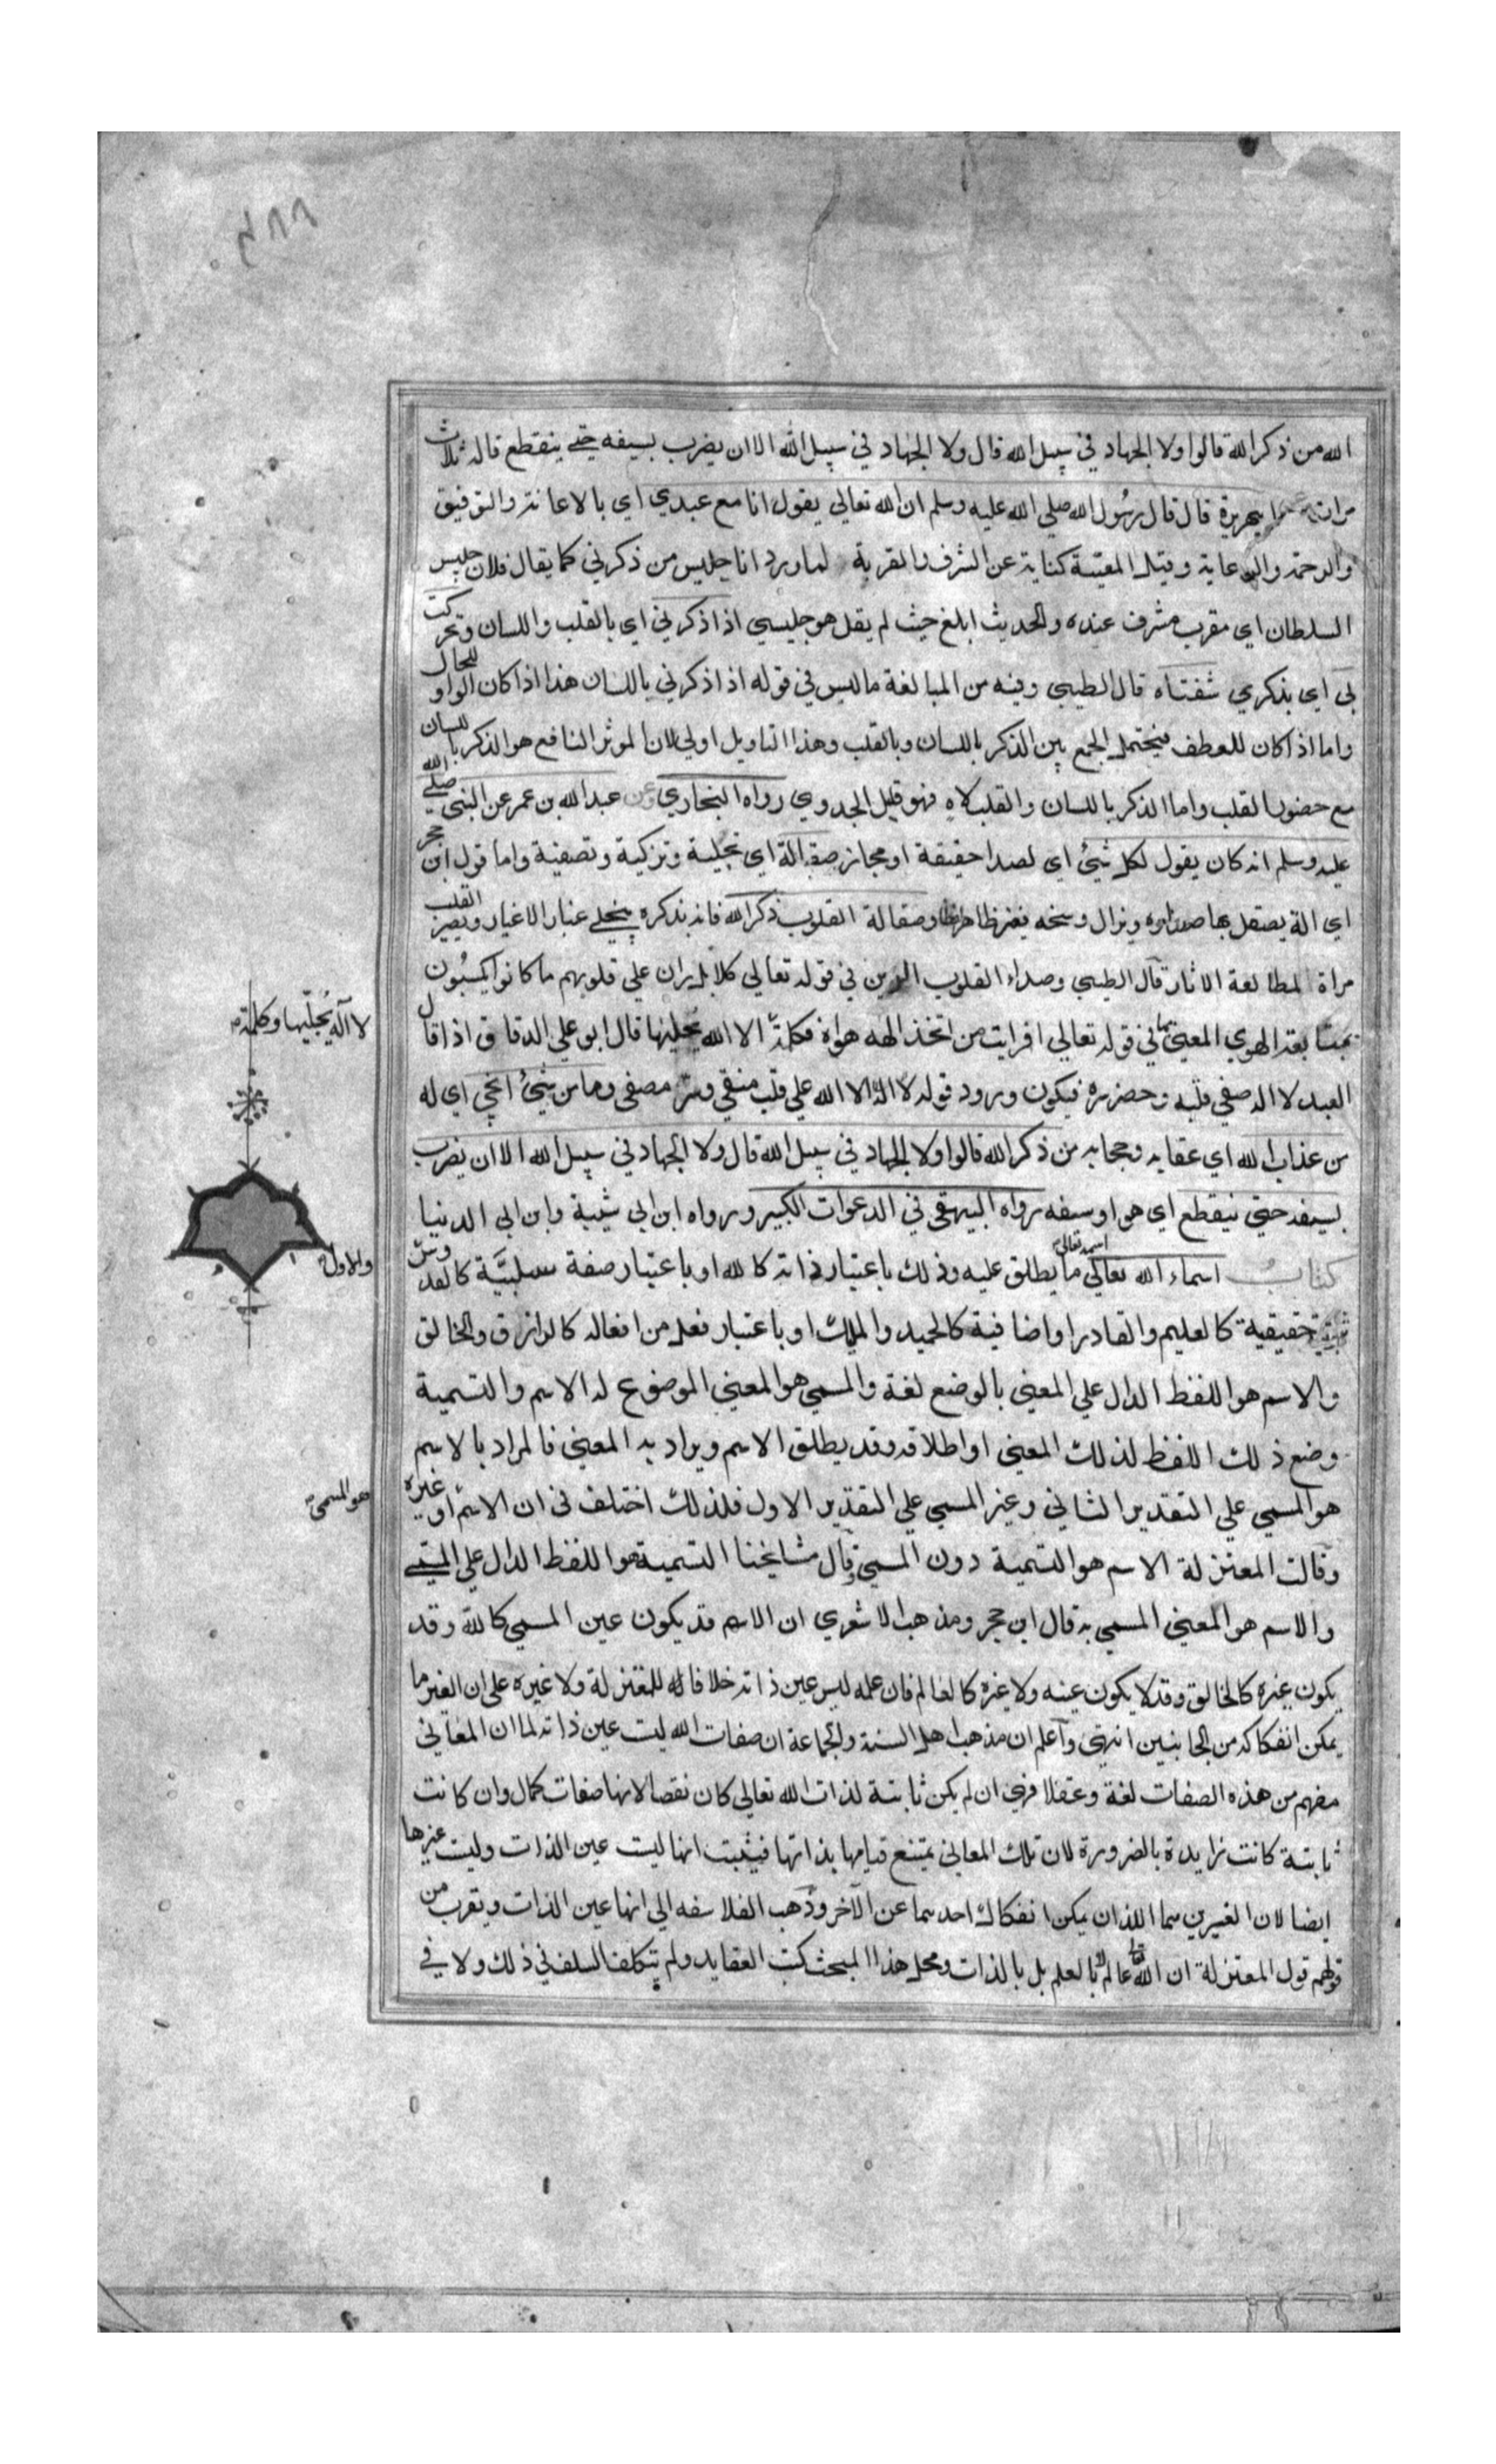 الله من ذكر الله قالوا ولا الجهاد في سبيل الله قال ولا الجهاد في سبيل الله الا ان يضرب بسيفه حتى ينقطع قاله ثلاث
مرات ابي هريرة قال قال رسول الله صلي الله عليه وسلم ان الله تعالي يقول انا مع عبدي اي بالاعانة والتوفيق
والرحمة والرعاية وقيل المعية كناية عن الشرف والقربة لما ورد انا جليس من ذكرني كما يقال فلان جليس
السلطان اي مقرب مشرف عنده والحديث ابلغ حيث لم يقل هو جليسي اذا ذكرني اي بالقلب واللسان وتحركت
بي اي بذكري شفتاه قال الطيبي وفيه من المبالغة ما ليس في قوله اذا ذكرني باللسان هذا اذا كان الواو للحال
واما اذا كان للعطف فيحتمل الجمع بين الذكر باللسان وبالقلب وهذا التاويل اولي لان المؤثر النافع هو الذكر باللسان
مع حضور القلب واما الذكر باللسان والقلب لاه فهو قليل الجدوي رواه البخاري وعن عبدالله بن عمر عن النبي صلي الله
عليه وسلم انه كان يقول لكل شيئ اي لصدا حقيقة او مجاز صقالة اي تجلية وتزكية وتصفية واما قول ابن حجر
اي الة يصقل بها صداوه ويزال وسخه فغير ظاهر وصقالة القلوب ذكر الله فانه بذكره ينجلي غبار الاغيار ويصير القلب
مراة لمطالعة الاثار قال الطيبي وصداء القلوب الرين في قوله تعالي كلا بل ران علي قلوبهم ما كانوا يكسبون
بمتابعة الهوي المعني بها في قوله تعالي افرايت من اتخذ الهه هواه فكلمة الا الله يحليها قال ابو علي الدقاق اذا قال
لا اله يُخليها وكلمة
العبد لا اله صفي قلبه وحضر سره فيكون ورود قوله لا اله الا الله علي قلب منقي وسر مصفي وما من شيئ انجي اي له
من عذاب الله اي عقابه وحجابه من ذكر الله قالوا ولا الجهاد في سبيل الله قال ولا الجهاد في سبيل الله الا ان يضرب
بسيفه حتي ينقطع اي هو او سيفه رواه البيهقي في الدعوات الكبير ورواه ابن ابي شيبة وابن ابي الدنيا
كتاب اسماء الله تعالي اسمه تعالي ما يطلق عليه وذلك باعتبار ذاته كالله او باعتبار صفة سلبيَّة كالقدوس
والاول
حقيقية كالعليم والقادر او اضافية كالحميد والملك او باعتبار فعل من افعاله كالرازق والخالق
والاسم هو اللفظ الدال علي المعني بالوضع لغة والمسمي هو المعني الموضوع له الاسم والتسمية
وضع ذلك اللفظ لذلك المعني او اطلاقه وقد يطلق الاسم ويراد به المعني فالمراد بالاسم
هو المسمي علي التقدير الثاني وغير المسمي علي التقدير الاول فلذلك اختلف في ان الاسم او غيره
هو المسمى
وقالت المعتزلة الاسم هو التسمية دون المسمي قال مشايخنا التسمية هو اللفظ الدال علي المسمي
والاسم هو المعني المسمي به قال ابن حجر ومذهب الاشعري ان الاسم قد يكون عين المسمي كالله وقد
يكون غيره كالخالق وقد لا يكون عينه ولا غيره كالعالم فان علمه ليس عين ذاته خلافا للمعتزلة ولا غيره علي ان الغير ما
يمكن انفكاكه من الجانبين انتهي واعلم ان مذهب اهل السنة والجماعة ان صفات الله ليست عين ذاته لما ان المعاني
مفهم من هذه الصفات لغة وعقلا فهي ان لم يكن ثابتة لذات الله تعالي كان نقصا لانها صفات كمال وان كانت
ثابتة كانت زايدة بالضرورة لان تلك المعاني يمتنع قيامها بذاتها فيثبت انها ليست عين الذات وليست غيرها
ايضا لان الغيرين هما اللذان يمكن انفكاك احدهما عن الآخر وذهب الفلاسفه الي انها عين الذات ويقرب من
قولهم قول المعتزلة ان الله تعالي عالم لا بالعلم بل بالذات ومحل هذا المبحث كتب العقايد ولم يتكلف السلف في ذلك ولا في